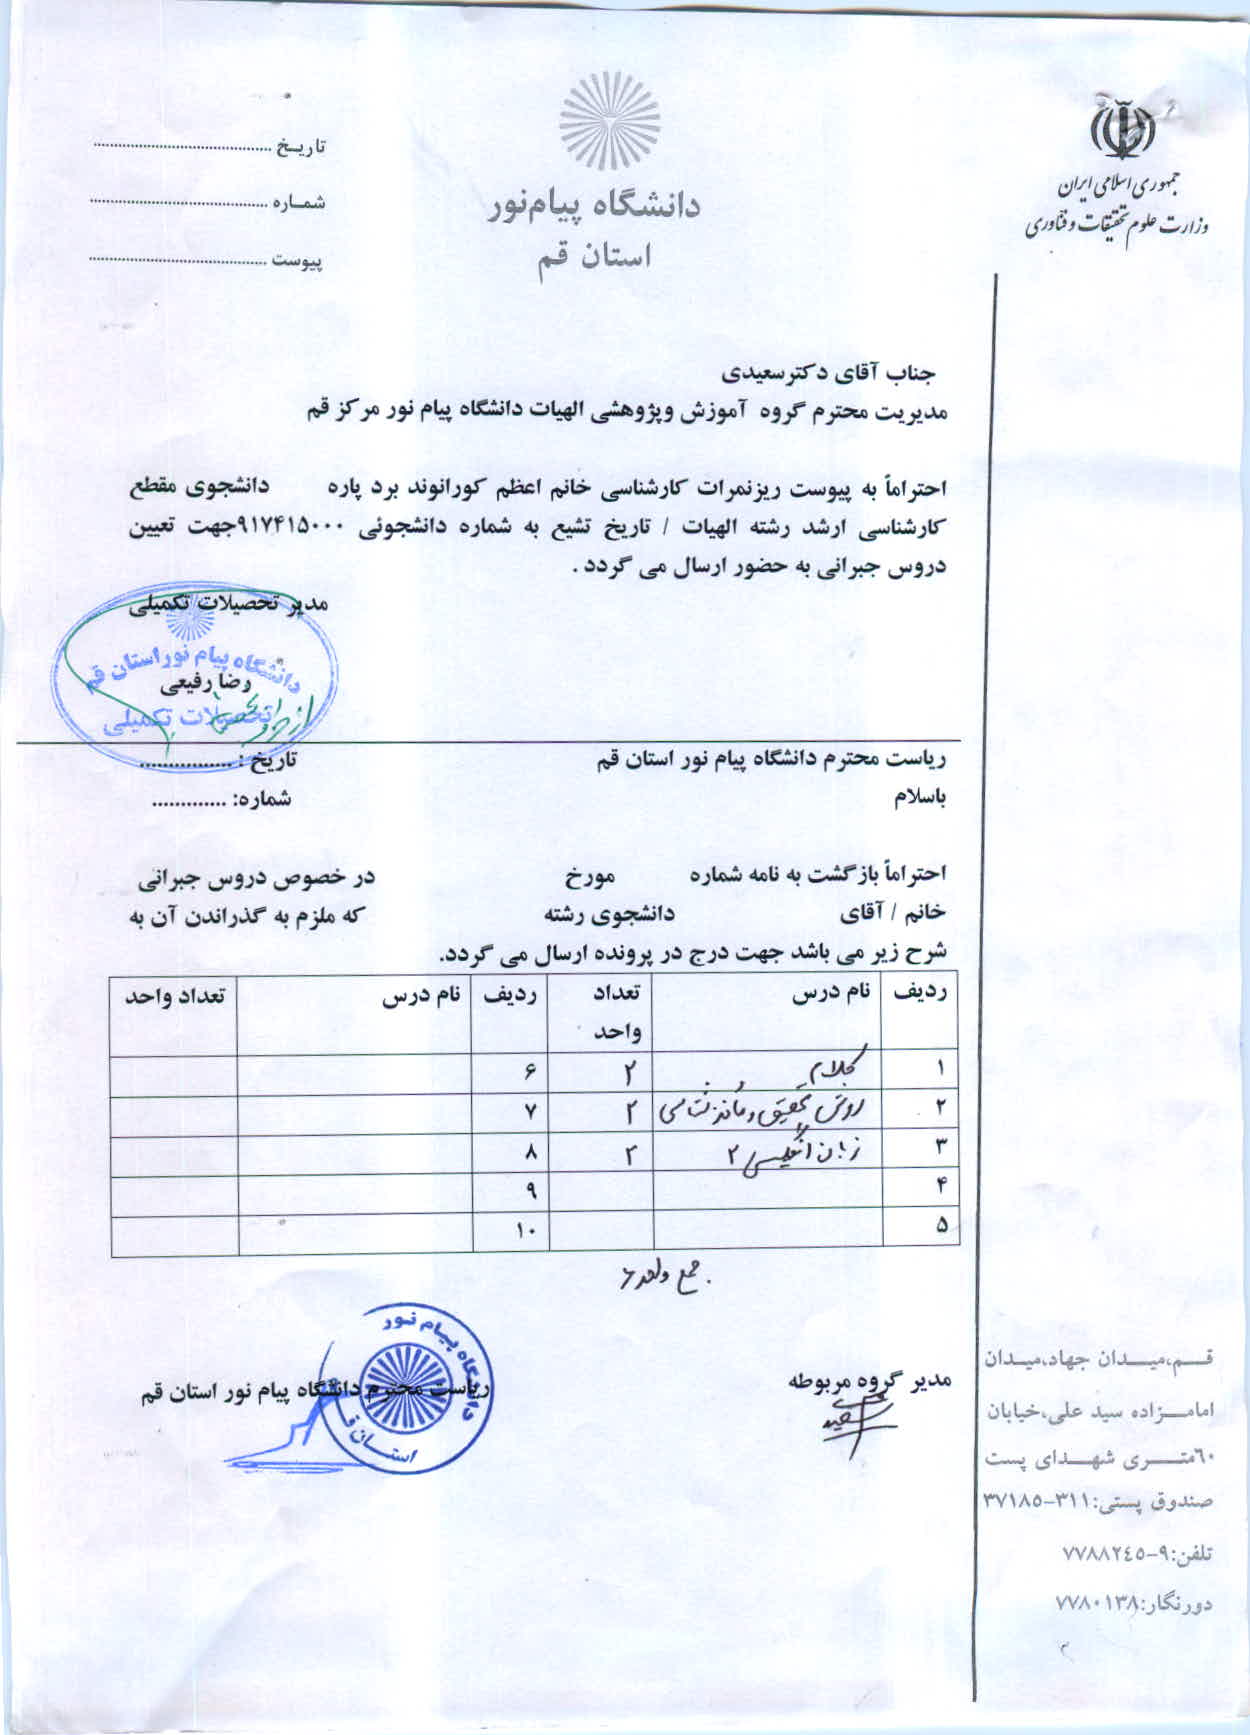 جمهوری اسلامی ایران
وزارت علوم تحقیقات و فناوری
دانشگاه پیام‌نور
استان قم
تاریـخ ........................................
شمـاره ........................................
پیوست ........................................
جناب آقای دکترسعیدی
مدیریت محترم گروه آموزش وپژوهشی الهیات دانشگاه پیام نور مرکز قم
احتراماً به پیوست ریزنمرات کارشناسی خانم اعظم کورانوند برد پاره دانشجوی مقطع
کارشناسی ارشد رشته الهیات / تاریخ تشیع به شماره دانشجوئی ۹۱۷۴۱۵۰۰۰جهت تعیین
دروس جبرانی به حضور ارسال می گردد .
مدیر تحصیلات تکمیلی
دانشگاه پیام نور استان قم
رضا رفیعی
تحصیلات تکمیلی
ریاست محترم دانشگاه پیام نور استان قم
تاریخ : ................
باسلام
شماره: .............
احتراماً بازگشت به نامه شماره مورخ در خصوص دروس جبرانی
خانم / آقای دانشجوی رشته که ملزم به گذراندن آن به
شرح زیر می باشد جهت درج در پرونده ارسال می گردد.
ردیف نام درس تعداد واحد ردیف نام درس تعداد واحد
۱ کلام ۲ ۶
۲ روش تحقیق و مأخذشناسی ۲ ۷
۳ زبان انگلیسی ۲ ۲ ۸
۴ ۹
۵ ۱۰
جمع واحد ۶
مدیر گروه مربوطه
ریاست محترم دانشگاه پیام نور استان قم
دانشگاه پیـام نـور
استـان قم
قـــم،میـــدان جهاد،میـدان
امامـــزاده سید علی،خیابان
٦٠متـــری شهـــدای پست
صندوق پستی:۳۱۱-۳۷۱۸۵
تلفن:۹-۷۷۸۸۲٤٥
دورنگار:۷۷۸۰۱۳۸